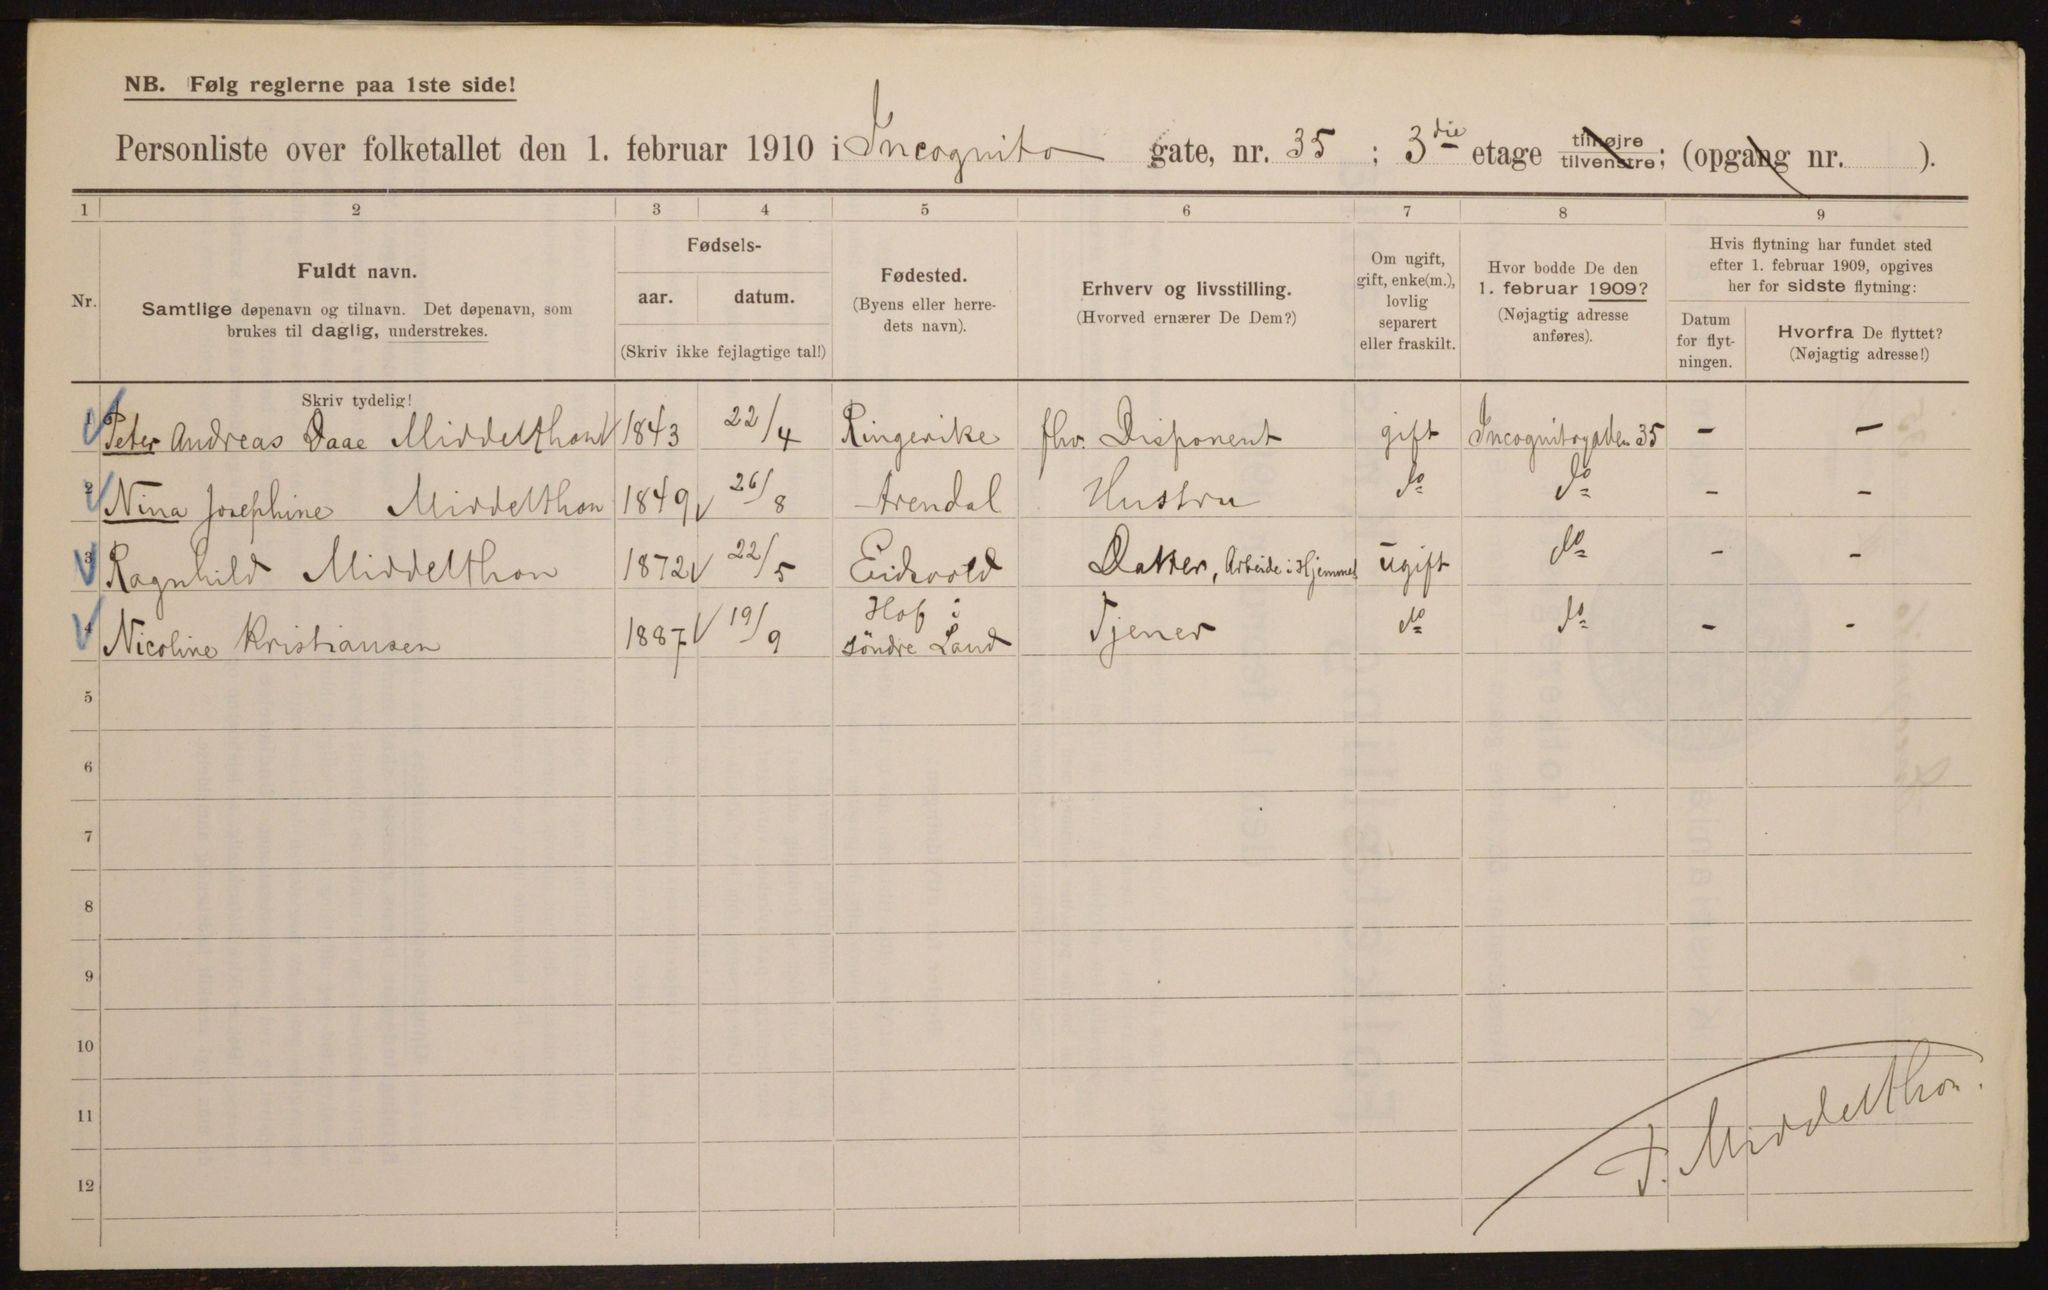 NB. Følg reglerne paa 1ste side!
Personliste over folketallet den 1. februar 1910 i Incognito gate, nr. 35 ; 3die etage tilhøjre tilvenstre; (opgang nr. ).
1 2 3 4 5 6 7 8 9
Nr.
Fuldt navn.
Samtlige døpenavn og tilnavn. Det døpenavn, som
brukes til daglig, understrekes.
Fødsels-
aar. datum.
(Skriv ikke fejlagtige tal!)
Fødested.
(Byens eller herre-
dets navn).
Erhverv og livsstilling.
(Hvorved ernærer De Dem?)
Om ugift,
gift, enke(m.),
lovlig
separert
eller fraskilt.
Hvor bodde De den
1. februar 1909?
(Nøjagtig adresse
anføres).
Hvis flytning har fundet sted
efter 1. februar 1909, opgives
her for sidste flytning:
Datum
for flyt-
ningen.
Hvorfra De flyttet?
(Nøjagtig adresse!)
Skriv tydelig!
1 Peter Andreas Daae Middelthon 1843 22/4 Ringerike fhv. Disponent gift Incognitogaden 35 – –
2 Nina Josephine Middelthon 1849 26/8 Arendal Hustru do do – –
3 Ragnhild Middelthon 1872 22/5 Eidsvold Datter, Arbeide i Hjemmet ugift do – –
4 Nicoline Kristiansen 1887 19/9 Hof i søndre Land Tjener do do – –
5
6
7
8
9
10
11
12
P. Middelthon.